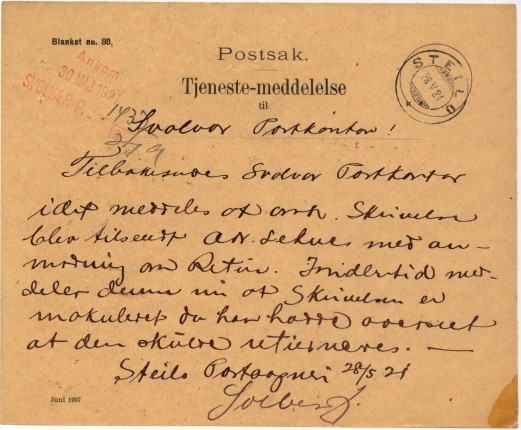 Blanket no. 30.
Postsak.
Tjeneste-meddelelse
til
Ankom
30 MAJ 192
SVOLVÆR
STEILO
28 V 21
1437
Svolvær Postkontor!
Tilbakesendes Svolvær Postkontor
idet meddeles at omh. Skrivelse
blev tilsendt adr. Leknes med an-
modning om Retur. Imidlertid med-
deler denne nu at Skrivelsen er
makuleret da han hadde overset
at den skulde returneres. —
Steilo Postaapneri 28/5 21
Solberg
Juni 1907